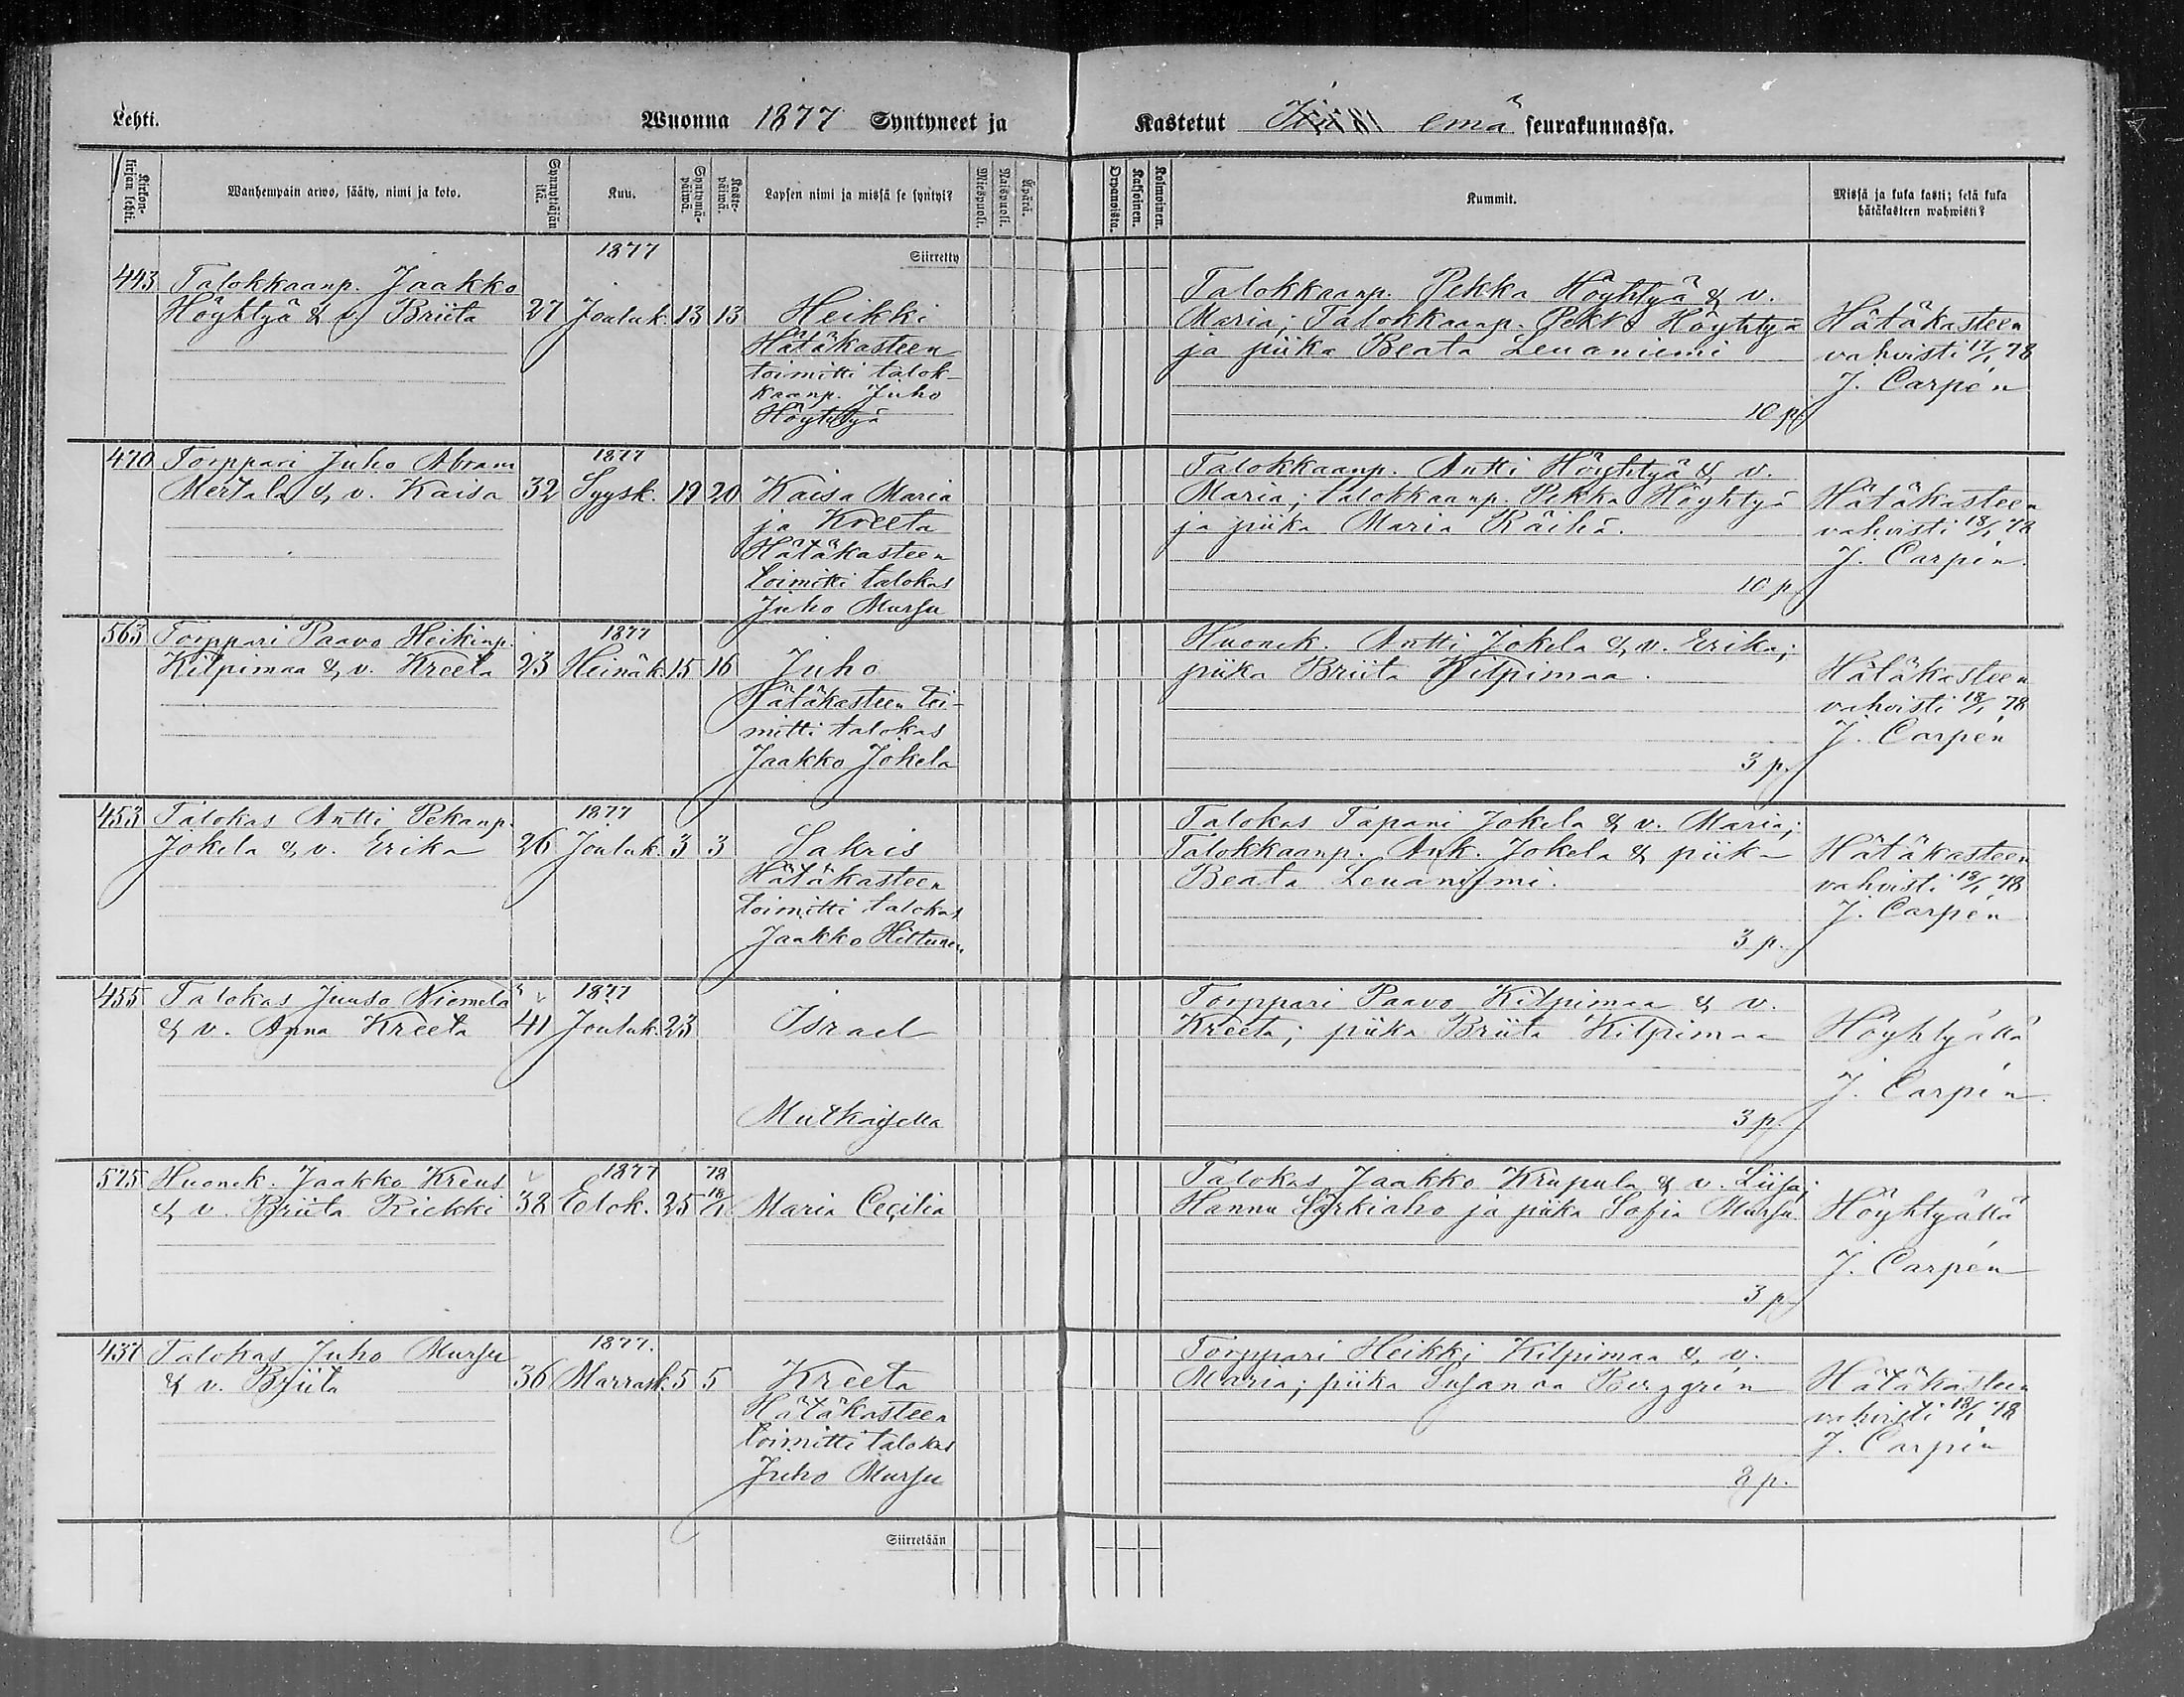 Lehti.
Wuonna 1877 Syntyneet ja
Kastetut emä seurakunnassa.
Kirkon-kirjan lehti.
Wanhempain arwo, sääty, nimi ja koto.
Synnyttäjän ikä.
Kuu.
Syntymä-päiwä.
Kaste-päiwä.
Lapsen nimi ja missä se syntyi?
Miespuoli.
Naispuoli.
Äpärä.
Orpanoista.
Kaksoinen.
Kolmoinen.
Kummit.
Missä ja kuka kasti; sekä kuka
hätäkasteen wahwisti?
Siirretty
1877
443 Talokkaanp. Jaakko
Höyhtyä & v. Briita 27 Jouluk. 13 13 Heikki
Hätäkasteen
toimitti talok-
kaanp. Juho
Höyhtyä
Talokkaanp. Pekka Höyhtyä & v.
Maria; Talokkaanp. Pekka Höyhtyä
ja piika Beata Leuaniemi
10 p.
Hätäkasteen
vahvisti 17/1 78
J. Carpén
1877
470 Torppari Juho Abram
Mertala & v. Kaisa 32 Syysk. 19 20 Kaisa Maria
ja Kreeta
Hätäkasteen
toimitti talokas
Juho Mursu
Talokkaanp. Antti Höyhtyä & v.
Maria; talokkaanp. Pekka Höyhtyä
ja piika Maria Räihä.
10 p
Hätäkasteen
vahvisti 18/1 78
J. Carpén.
1877
563 Torppari Paavo Heikinp.
Kilpimaa & v. Kreeta 23 Heinäk. 15 16 Juho
Hätäkasteen toi-
mitti talokas
Jaakko Jokela
Huonek. Antti Jokela & v. Erika;
piika Briita Kilpimaa.
3 p.
Hätäkasteen
vahvisti 18/1 78
J. Carpén
1877
453 Talokas Antti Pekanp.
Jokela & v. Erika 26 Jouluk. 3 3 Sakris
Hätäkasteen
toimitti talokas
Jaakko Hiltunen.
Talokas Tapani Jokela & v. Maria;
Talokkaanp. Ant. Jokela & piika
Beata Leuaniemi.
3 p.
Hätäkasteen
vahvisti 18/1 78
J. Carpén
1877
455 Talokas Juuso Niemelä
& v. Anna Kreeta 41 Jouluk. 23 Israel
Mutkaisella
Torppari Paavo Kilpimaa & v.
Kreeta; piika Briita Kilpimaa
3 p.
Höyhtyällä
J. Carpén.
1877
575 Huonek. Jaakko Kreus
& v. Briita Riekki 38 Elok. 25 78 18/1 Maria Cecilia
Talokas Jaakko Krupula & v. Liisa;
Hannu Särkiaho ja piika Sofia Mursu.
3 p.
Höyhtyällä
J. Carpén
1877.
437 Talokas Juho Mursu
& v. Briita 36 Marrask. 5 5 Kreeta
Hätäkasteen
toimitti talokas
Juho Mursu
Torppari Heikki Kilpimaa & v.
Maria; piika Susanna Berggrén
p.
Hätäkasteen
vahvisti 18/1 78
J. Carpén
Siirretään